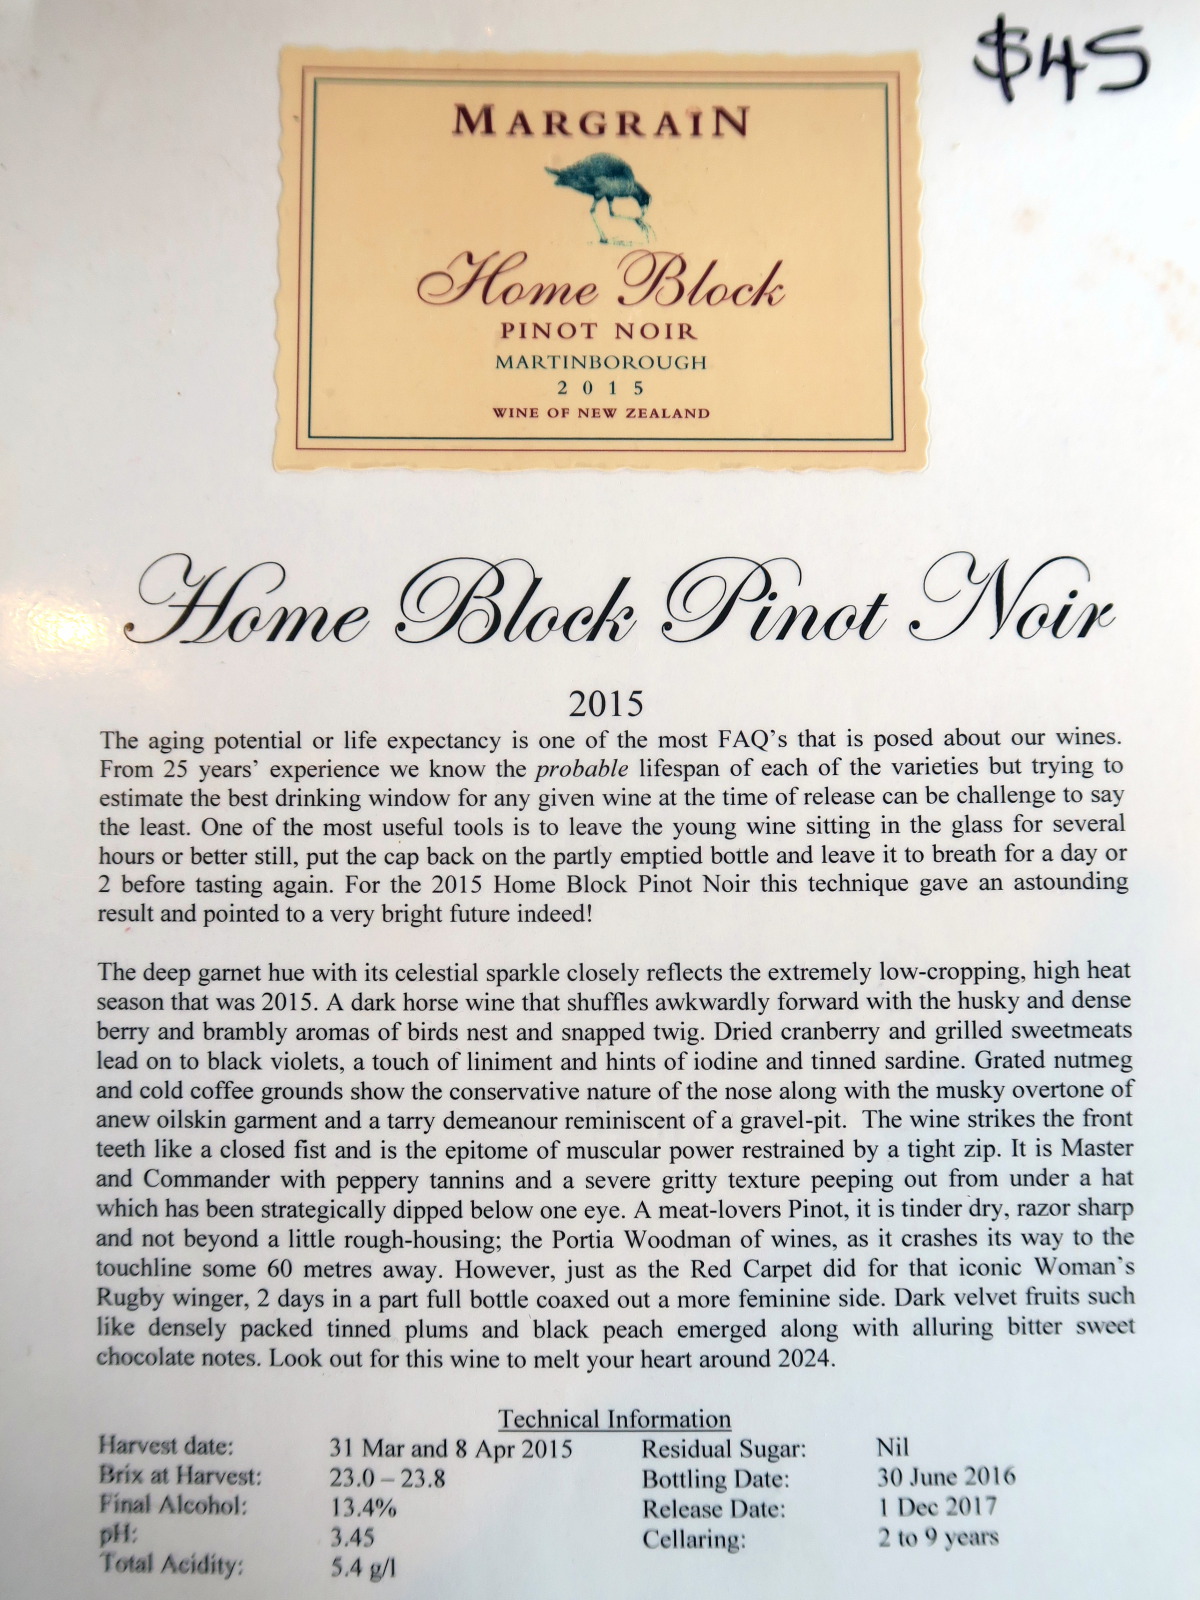 $45
MARGRAIN
Home Block
PINOT NOIR
MARTINBOROUGH
2 0 1 5
WINE OF NEW ZEALAND
Home Block Pinot Noir
2015
The aging potential or life expectancy is one of the most FAQ's that is posed about our wines.
From 25 years' experience we know the probable lifespan of each of the varieties but trying to
estimate the best drinking window for any given wine at the time of release can be challenge to say
the least. One of the most useful tools is to leave the young wine sitting in the glass for several
hours or better still, put the cap back on the partly emptied bottle and leave it to breath for a day or
2 before tasting again. For the 2015 Home Block Pinot Noir this technique gave an astounding
result and pointed to a very bright future indeed!
The deep garnet hue with its celestial sparkle closely reflects the extremely low-cropping, high heat
season that was 2015. A dark horse wine that shuffles awkwardly forward with the husky and dense
berry and brambly aromas of birds nest and snapped twig. Dried cranberry and grilled sweetmeats
lead on to black violets, a touch of liniment and hints of iodine and tinned sardine. Grated nutmeg
and cold coffee grounds show the conservative nature of the nose along with the musky overtone of
anew oilskin garment and a tarry demeanour reminiscent of a gravel-pit. The wine strikes the front
teeth like a closed fist and is the epitome of muscular power restrained by a tight zip. It is Master
and Commander with peppery tannins and a severe gritty texture peeping out from under a hat
which has been strategically dipped below one eye. A meat-lovers Pinot, it is tinder dry, razor sharp
and not beyond a little rough-housing; the Portia Woodman of wines, as it crashes its way to the
touchline some 60 metres away. However, just as the Red Carpet did for that iconic Woman's
Rugby winger, 2 days in a part full bottle coaxed out a more feminine side. Dark velvet fruits such
like densely packed tinned plums and black peach emerged along with alluring bitter sweet
chocolate notes. Look out for this wine to melt your heart around 2024.
Technical Information
Harvest date: 31 Mar and 8 Apr 2015 Residual Sugar: Nil
Brix at Harvest: 23.0 – 23.8 Bottling Date: 30 June 2016
Final Alcohol: 13.4% Release Date: 1 Dec 2017
pH: 3.45 Cellaring: 2 to 9 years
Total Acidity: 5.4 g/l